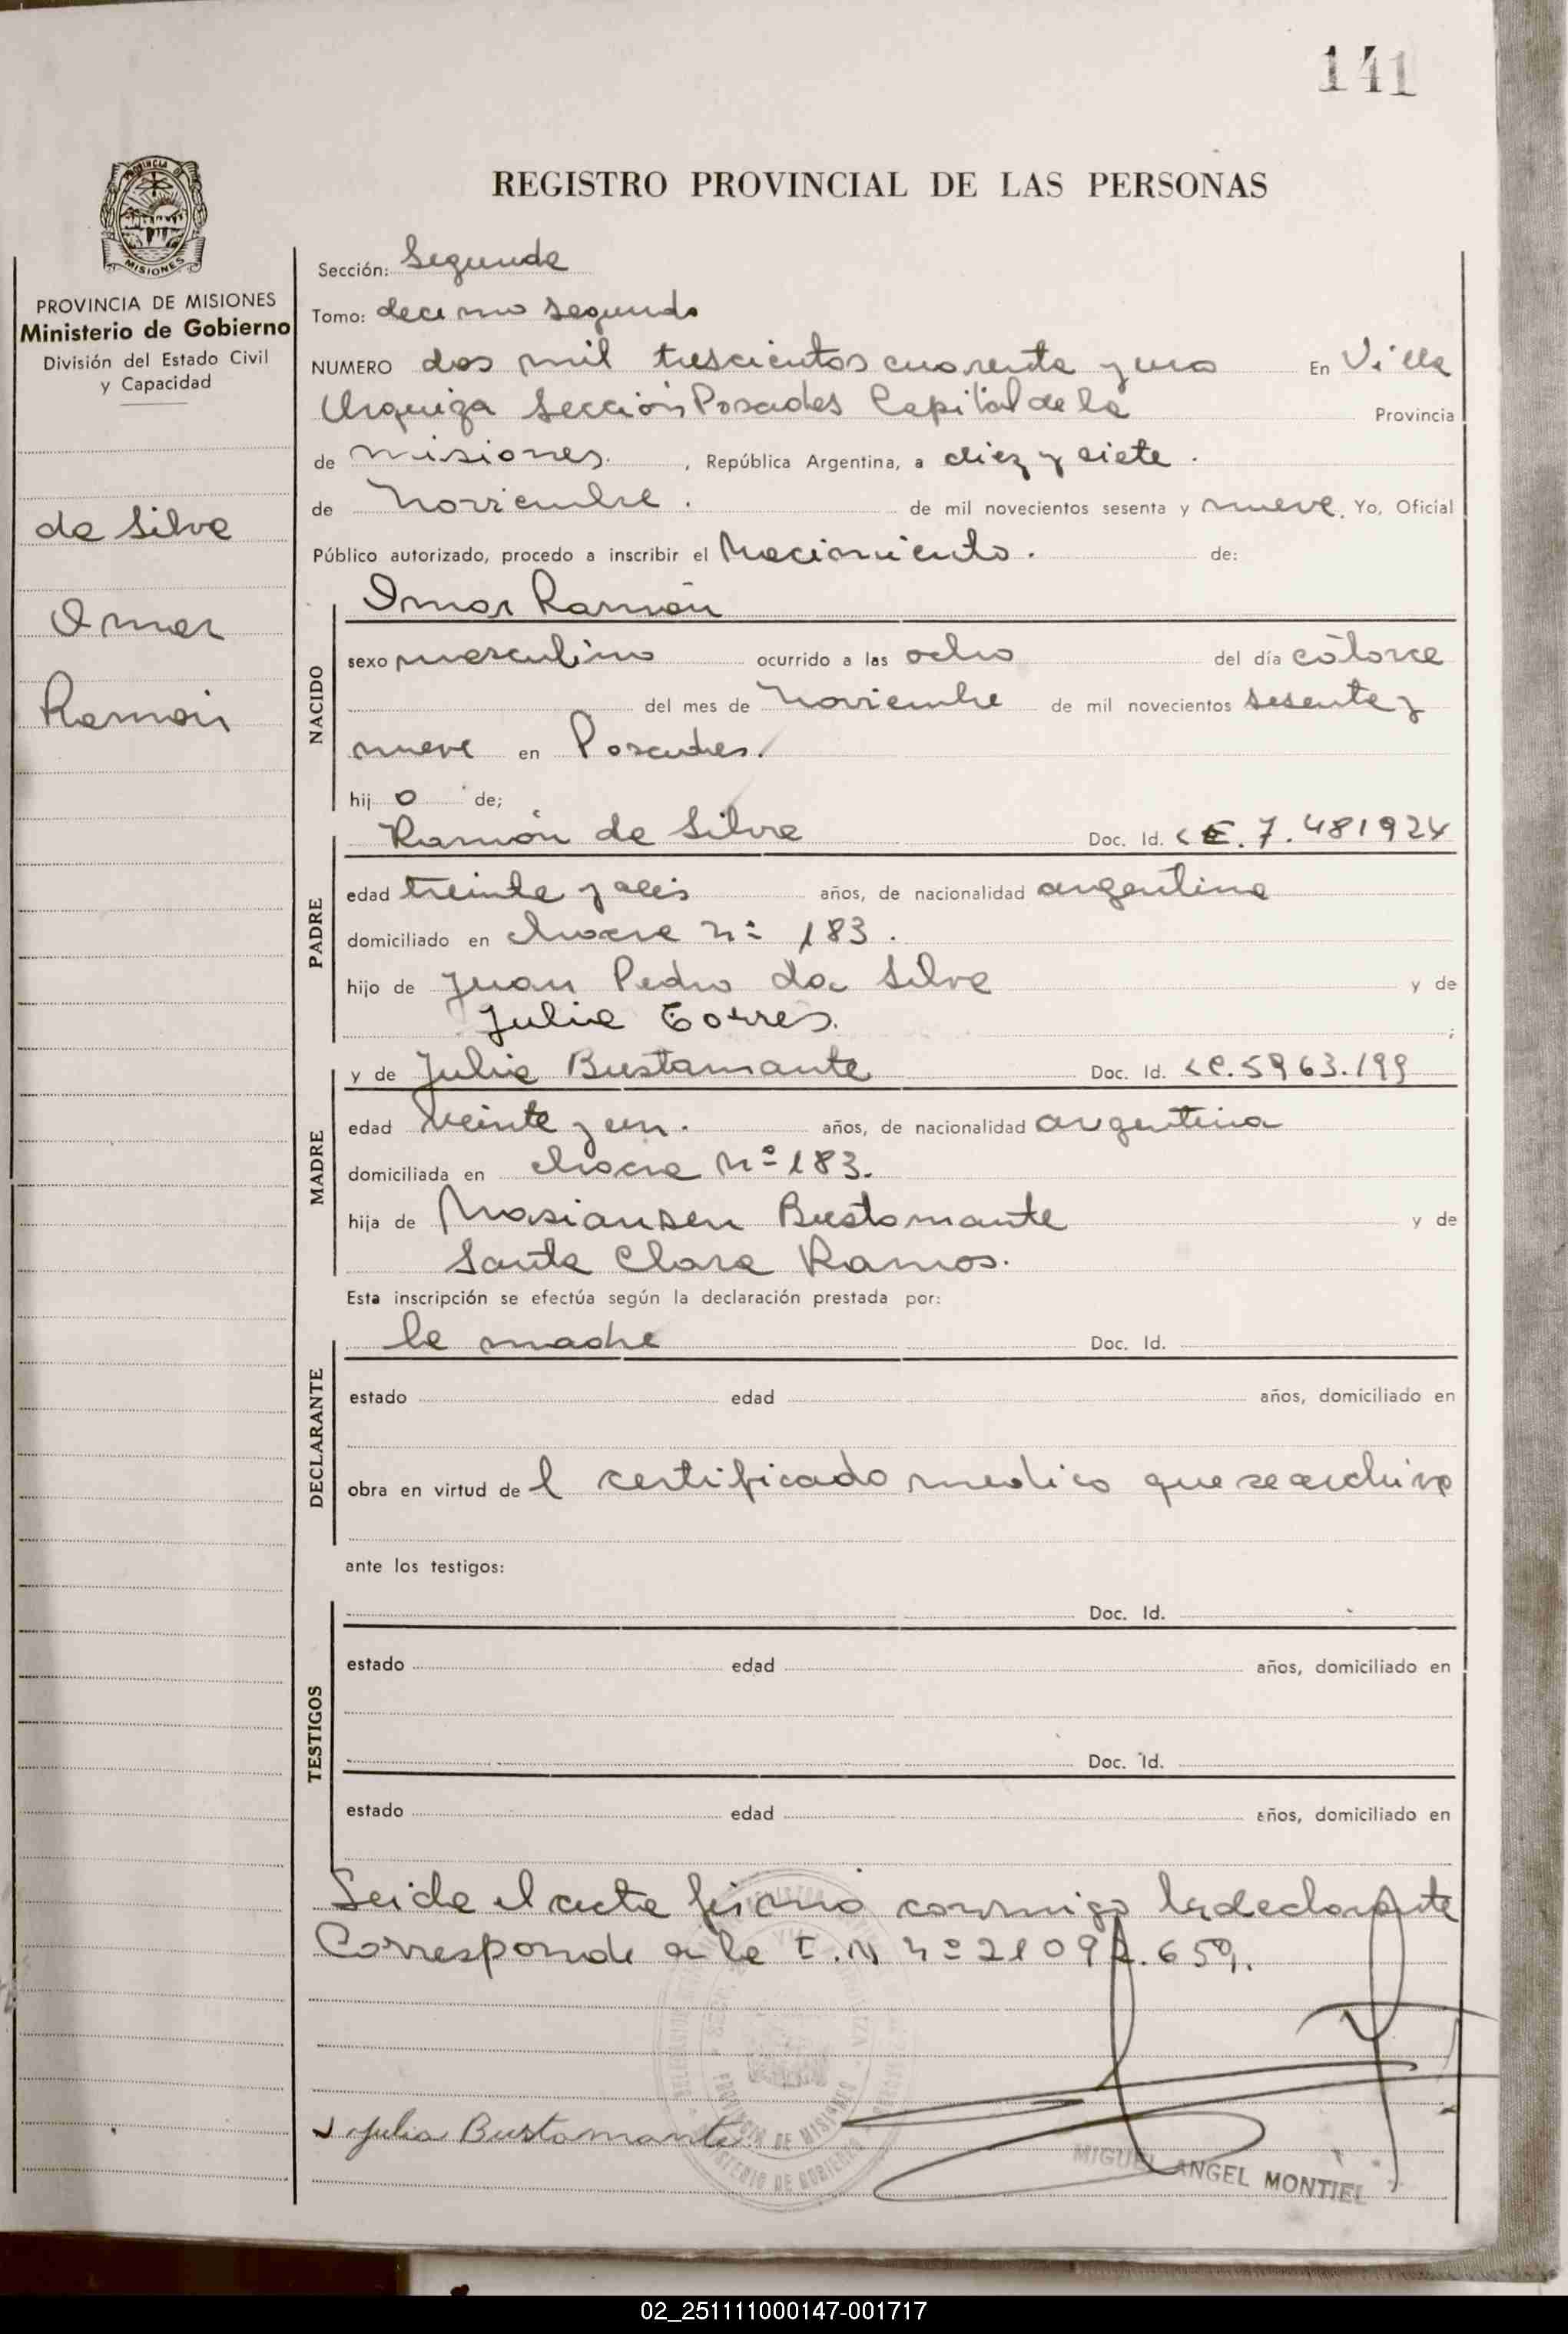 141
REGISTRO PROVINCIAL DE LAS PERSONAS
PROVINCIA DE MISIONES
Ministerio de Gobierno
División del Estado Civil
y Capacidad
de Silva
Omar
Ramón
Sección: Segunda
Tomo: decimo segundo
NUMERO dos mil trescientos cuarenta y uno En Villa
Urquiza Sección Posadas Capital de la Provincia
de misiones. , República Argentina, a diez y siete.
de Noviembre. de mil novecientos sesenta y nueve. Yo, Oficial
Público autorizado, procedo a inscribir el Nacimiento. de:
NACIDO
Omar Ramón
sexo masculino ocurrido a las ocho del día catorce
del mes de Noviembre de mil novecientos sesenta y
nueve en Posadas.
hij o de;
PADRE
Ramón de Silva Doc. Id. 7.481924
edad treinta y seis años, de nacionalidad argentina
domiciliado en chacra nº 183.
hijo de Juan Pedro da Silva y de
Julia Torres. ;
MADRE
y de Julia Bustamante Doc. Id. LC. 5963.199
edad veinte y un. años, de nacionalidad argentina
domiciliada en chacra Nº 183.
hija de Bustamante y de
Santa Clara Ramos.
Esta inscripción se efectúa según la declaración prestada por:
DECLARANTE
la madre Doc. Id.
estado edad años, domiciliado en
obra en virtud de l certificado medico que se archiva
ante los testigos:
TESTIGOS
Doc. Id.
estado edad años, domiciliado en
Doc. Id.
estado edad años, domiciliado en
Leida el acta firmó conmigo la declarante
Corresponde a la nº 21092.659.
Julia Bustamante
PROVINCIA DE MISIONES
MINISTERIO DE GOBIERNO
MIGUEL ANGEL MONTIEL
02_251111000147-001717